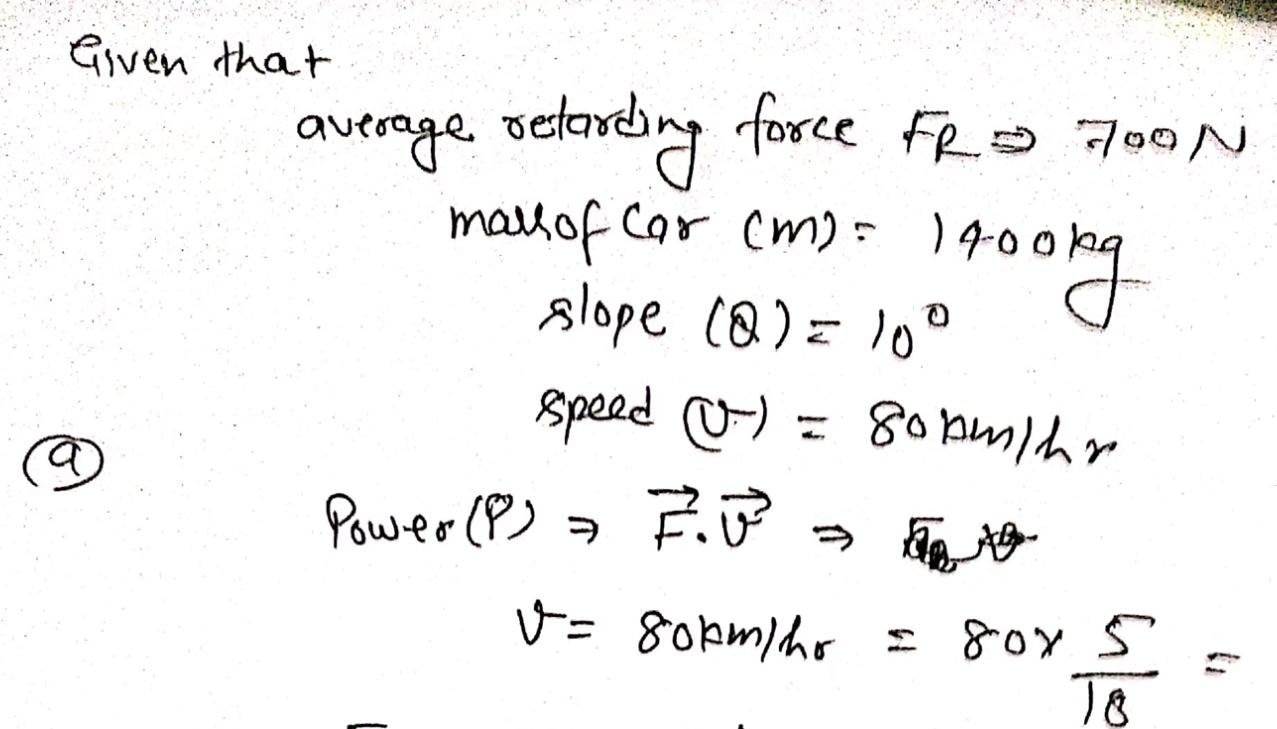 Given that
average retarding force FR ⇒ 700N
mass of Car (m) = 1400kg
slope (θ) = 10°
speed (v) = 80km/hr
(a)
Power (P) ⇒ F⃗.v⃗ ⇒
v = 80km/hr = 80x 5/18 =